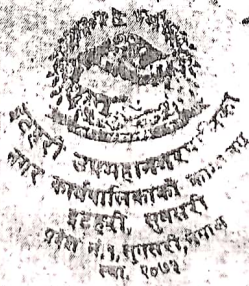 इटहरी उपमहानगरपालिका
नगर कार्यपालिकाको कार्यालय
इटहरी, सुनसरी
सुनसरी, नेपाल
स्था. २०७३